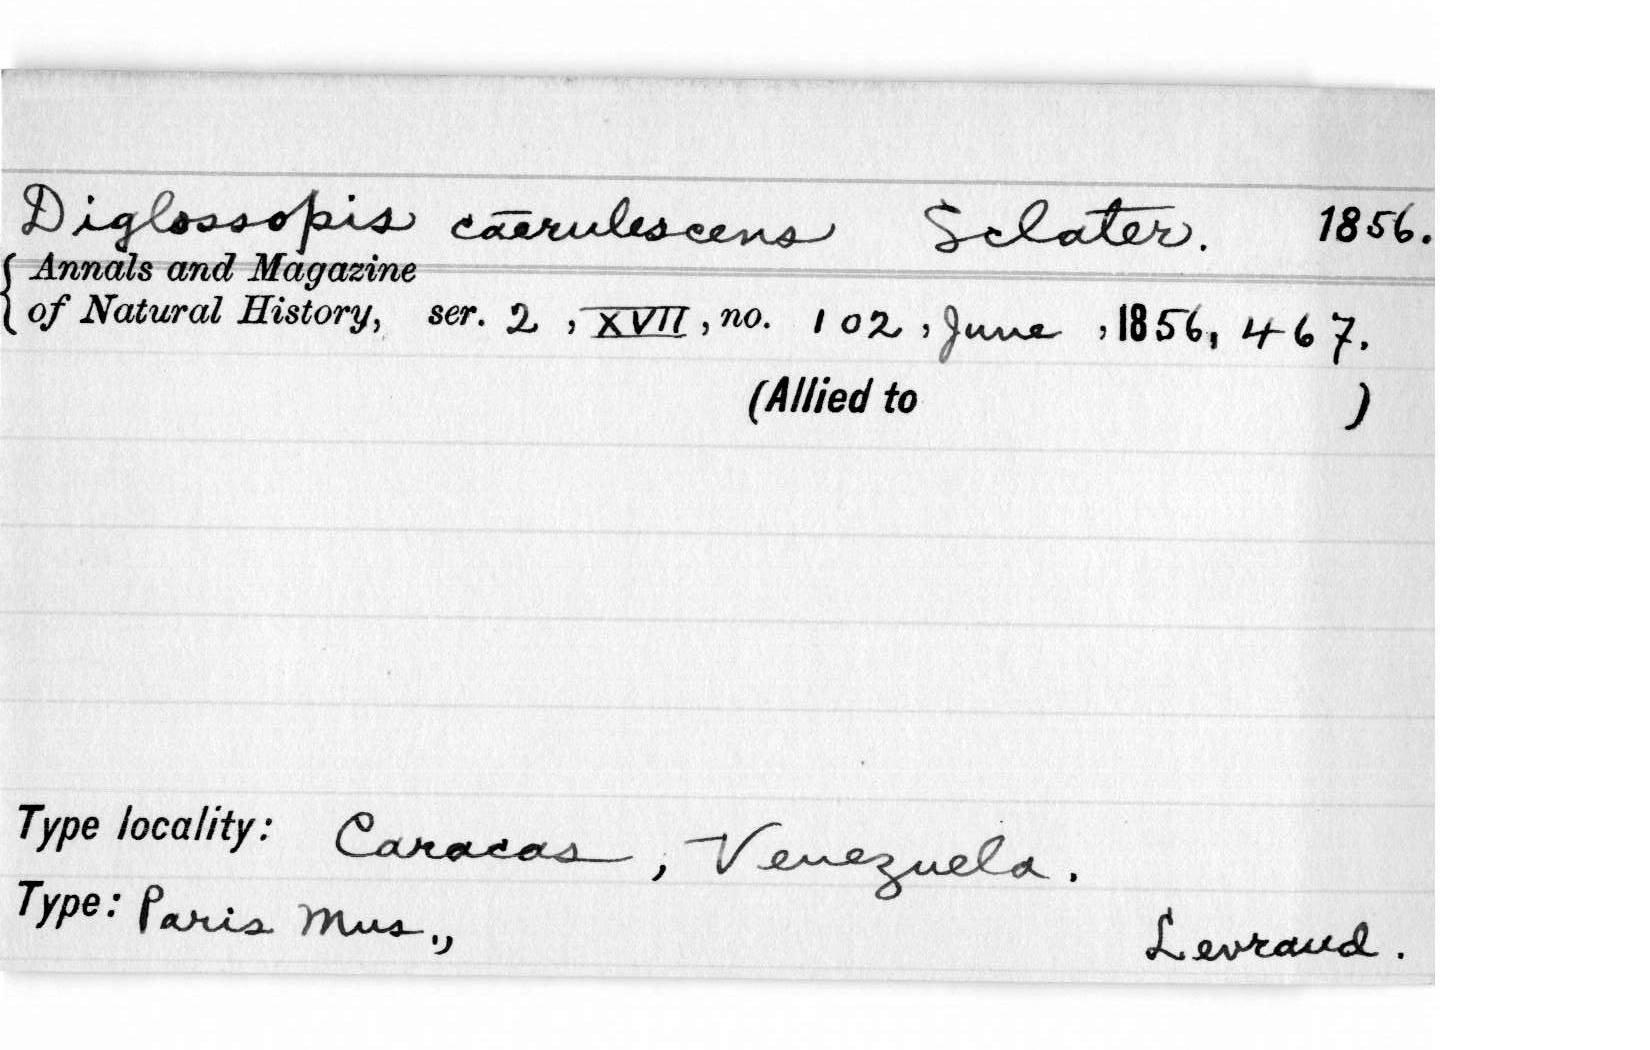 Diglossopis caerulescens Sclater. 1856.
{ Annals and Magazine
of Natural History, ser. 2, XVII, no. 102, June, 1856, 467.
(Allied to )
Type locality: Caracas, Venezuela.
Type: Paris Mus., Levraud.